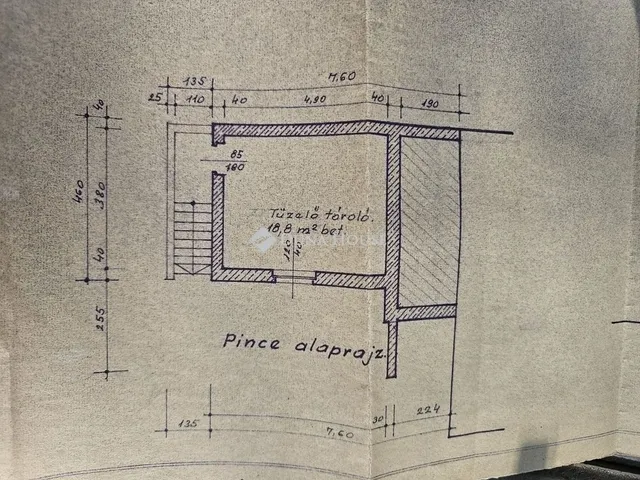 7,60
135
25 110 40 4,90 40 190
40
85
180
460
380
Tüzelő tároló.
18,8 m² bet.
120
40
40
255
Pince alaprajz.
135
30
224
7,60